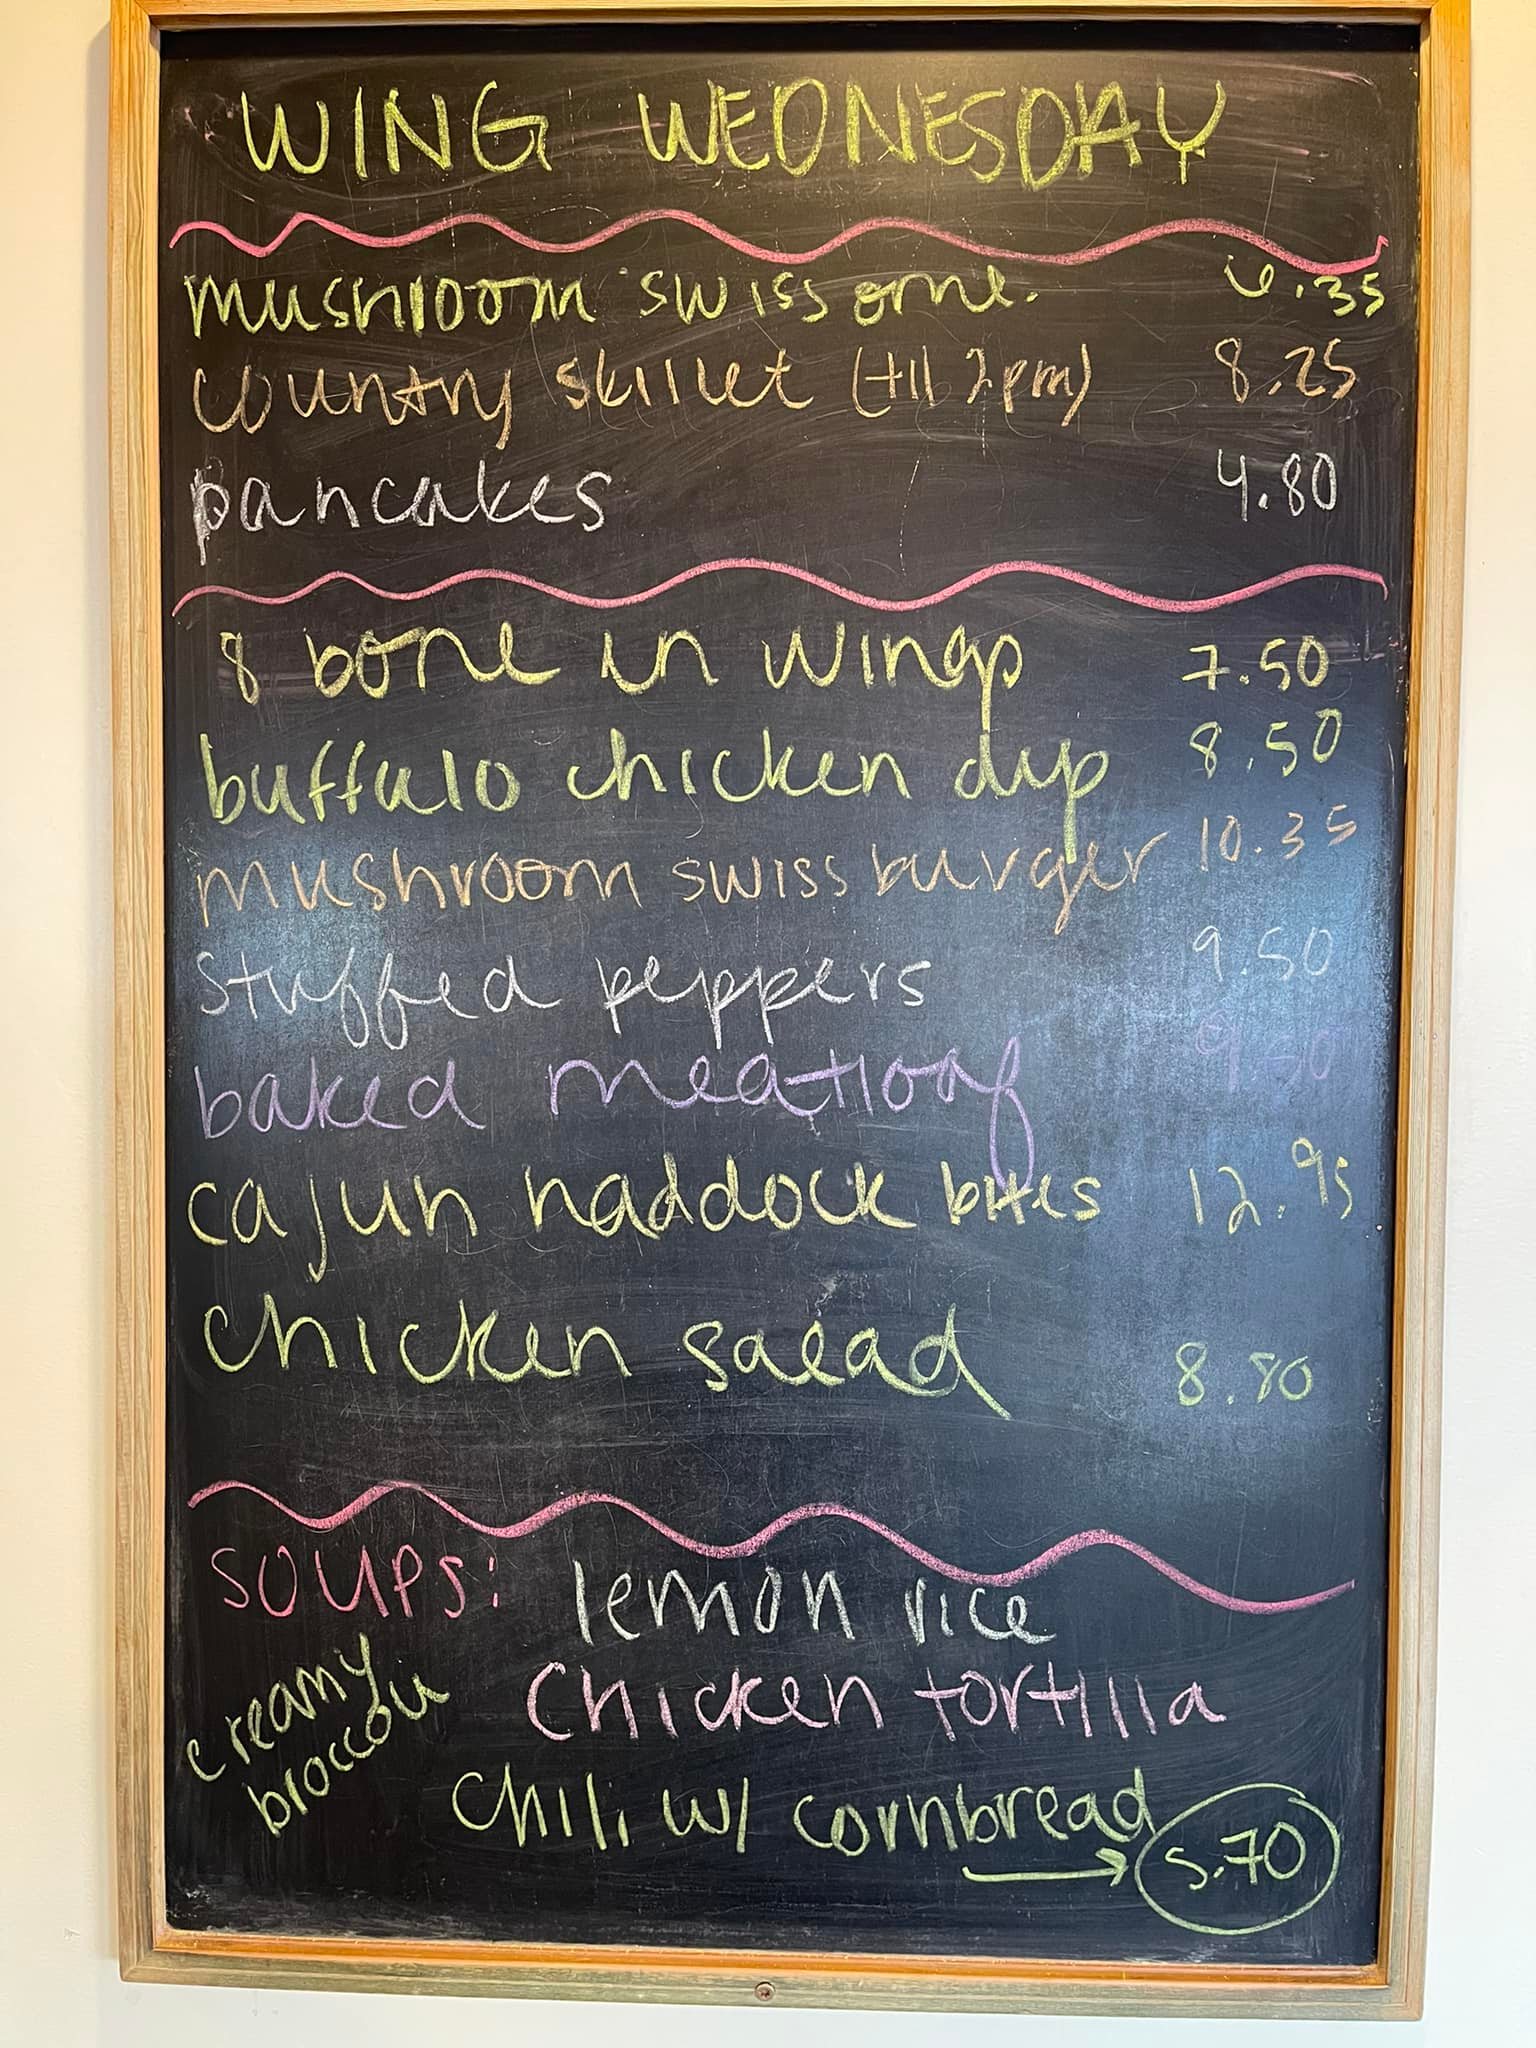 WING WEDNESDAY
mushroom swiss ome. 6.35
country skillet (till 2pm) 8.25
pancakes 4.80
8 bone in wings 7.50
buffalo chicken dip 8.50
mushroom swiss burger 10.35
stuffed peppers 9.50
baked meatloaf 9.50
cajun haddock bites 12.95
chicken salad 8.80
SOUPS: lemon rice
creamy
broccoli
chicken tortilla
chili w/ cornbread
5.70